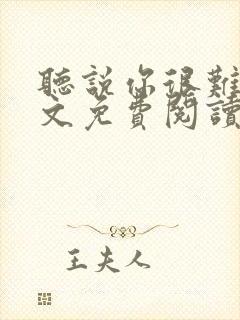 聽說你很難
文免費閱讀
王夫人